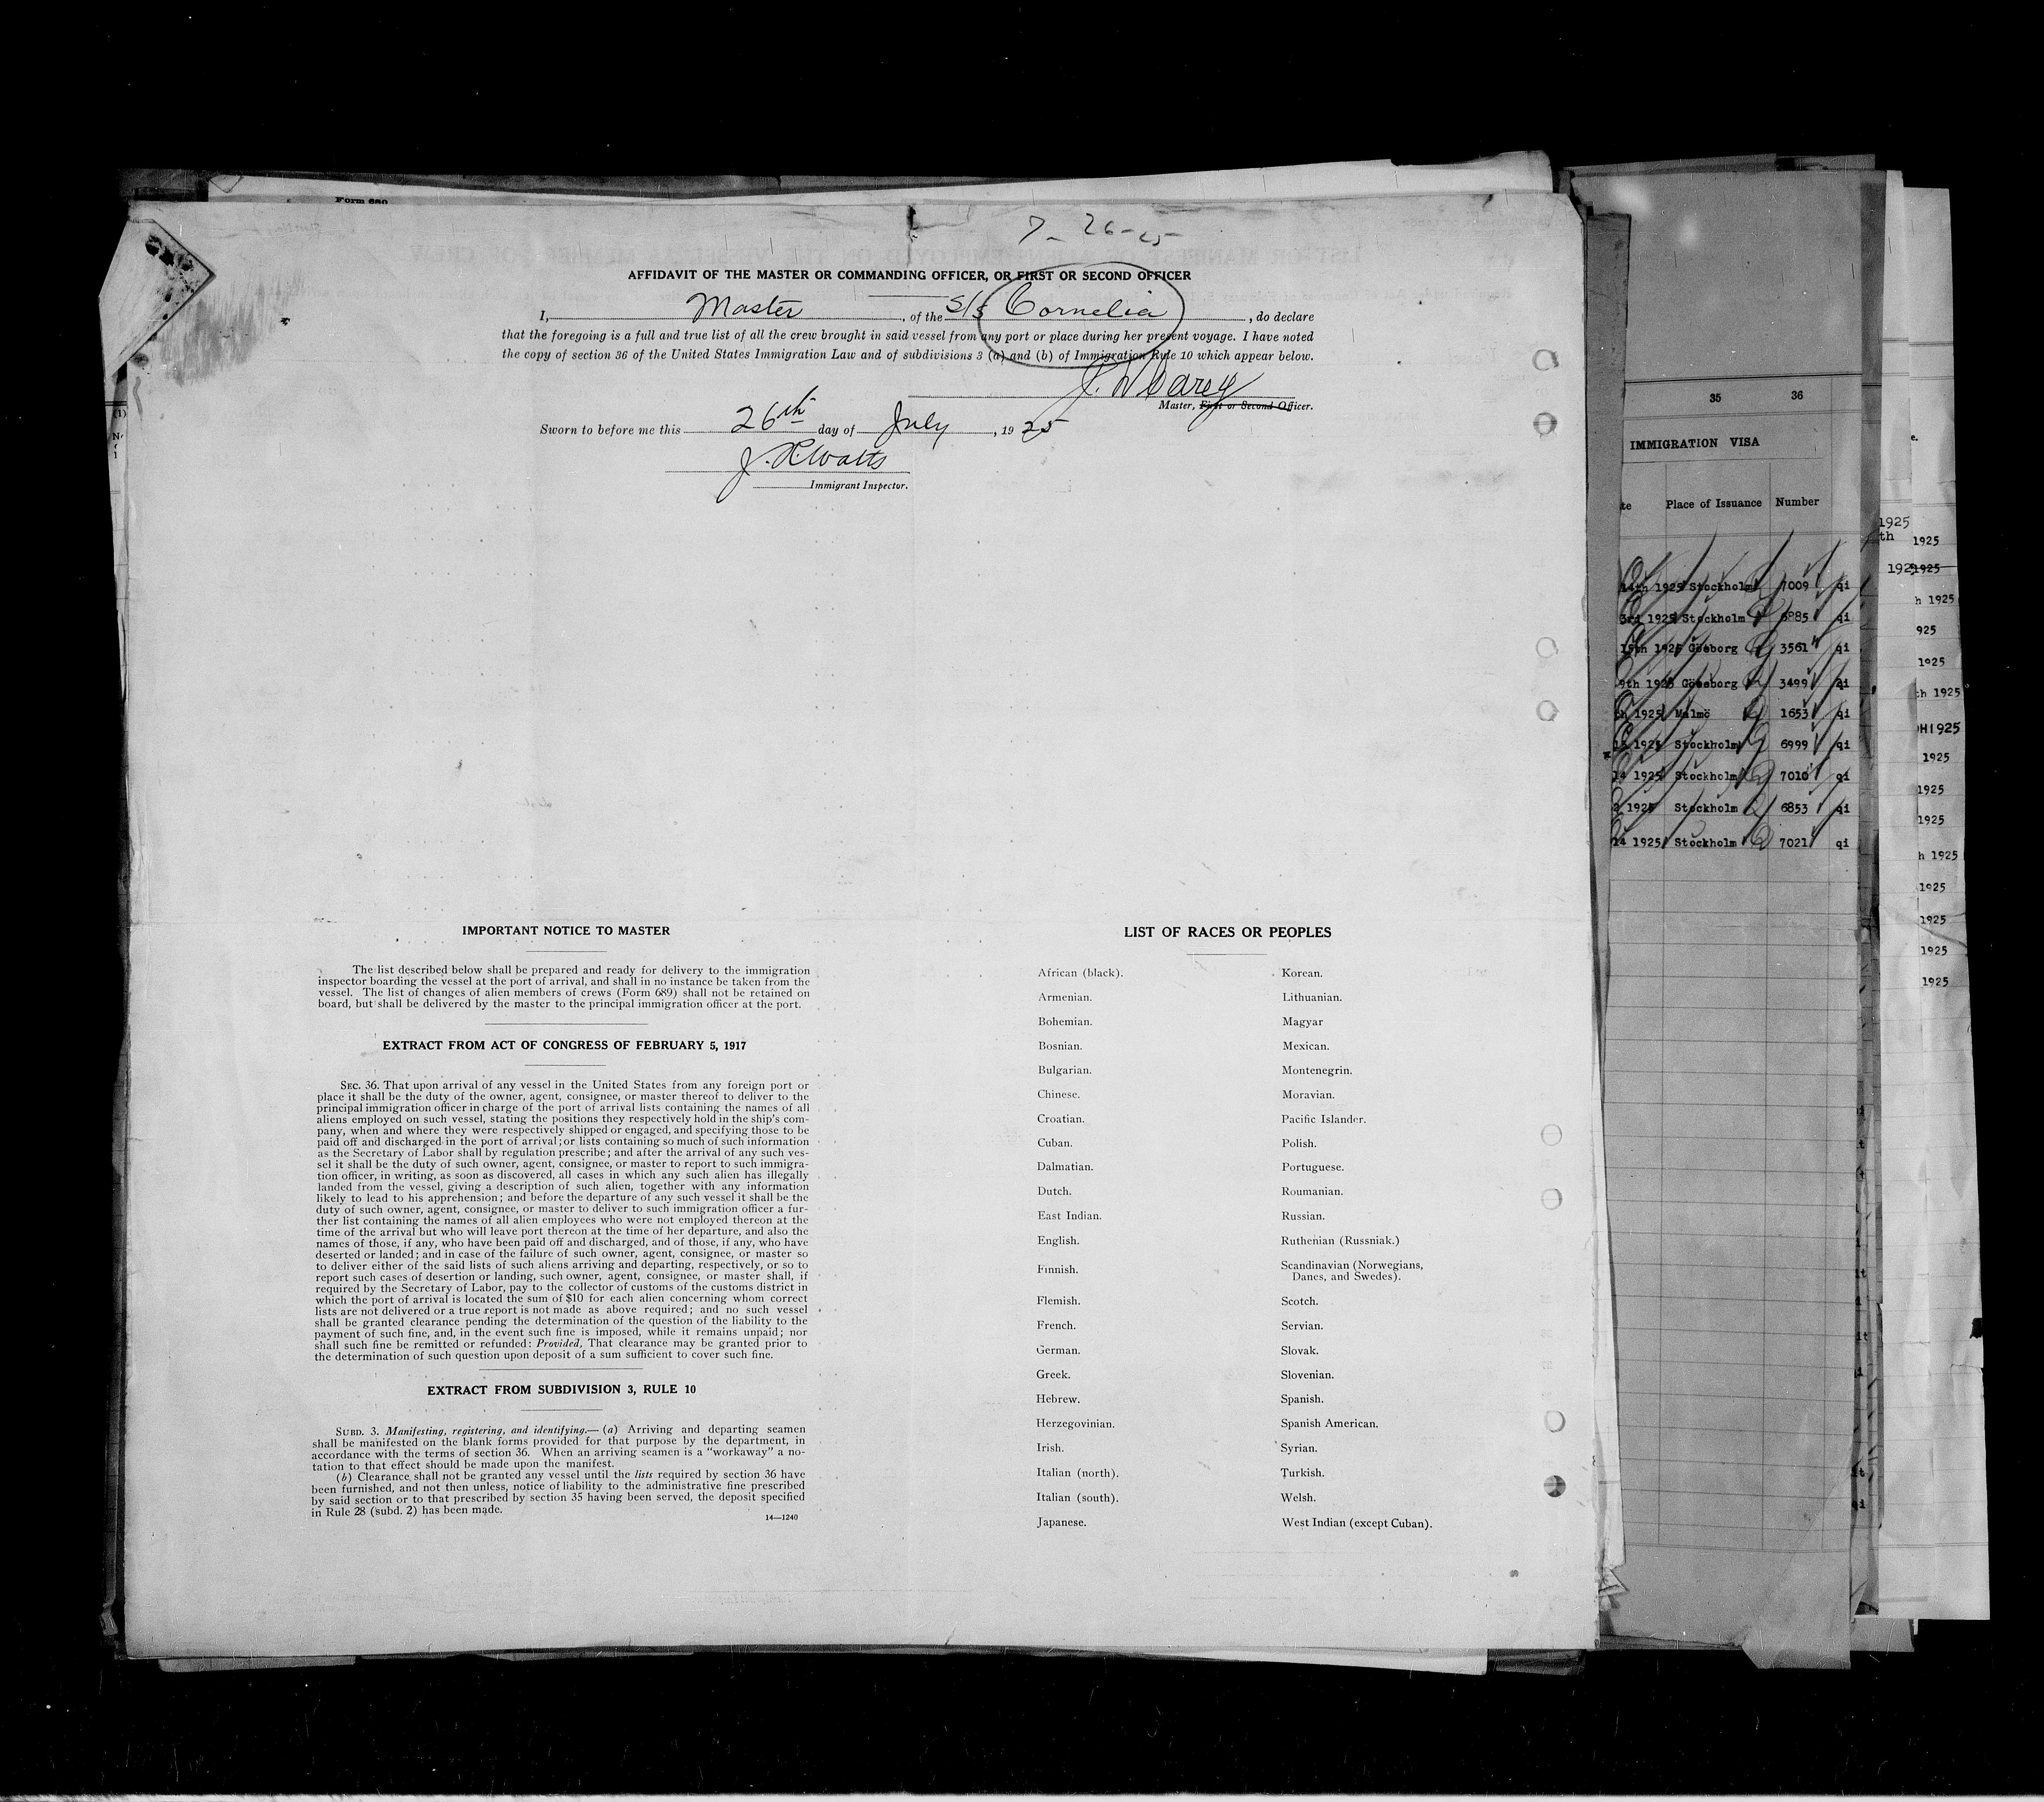 Form 689
7-26-25
AFFIDAVIT OF THE MASTER OR COMMANDING OFFICER, OR FIRST OR SECOND OFFICER
I, Master, of the S/S Cornelia, do declare
that the foregoing is a full and true list of all the crew brought in said vessel from any port or place during her present voyage. I have noted
the copy of section 36 of the United States Immigration Law and of subdivisions 3 (a) and (b) of Immigration Rule 10 which appear below.
Master, First or Second Officer.
Sworn to before me this 26th day of July, 1925
Watts
Immigrant Inspector.
IMPORTANT NOTICE TO MASTER
The list described below shall be prepared and ready for delivery to the immigration
inspector boarding the vessel at the port of arrival, and shall in no instance be taken from the
vessel. The list of changes of alien members of crews (Form 689) shall not be retained on
board, but shall be delivered by the master to the principal immigration officer at the port.
EXTRACT FROM ACT OF CONGRESS OF FEBRUARY 5, 1917
SEC. 36. That upon arrival of any vessel in the United States from any foreign port or
place it shall be the duty of the owner, agent, consignee, or master thereof to deliver to the
principal immigration officer in charge of the port of arrival lists containing the names of all
aliens employed on such vessel, stating the positions they respectively hold in the ship's com-
pany, when and where they were respectively shipped or engaged, and specifying those to be
paid off and discharged in the port of arrival; or lists containing so much of such information
as the Secretary of Labor shall by regulation prescribe; and after the arrival of any such ves-
sel it shall be the duty of such owner, agent, consignee, or master to report to such immigra-
tion officer, in writing, as soon as discovered, all cases in which any such alien has illegally
landed from the vessel, giving a description of such alien, together with any information
likely to lead to his apprehension; and before the departure of any such vessel it shall be the
duty of such owner, agent, consignee, or master to deliver to such immigration officer a fur-
ther list containing the names of all alien employees who were not employed thereon at the
time of the arrival but who will leave port thereon at the time of her departure, and also the
names of those, if any, who have been paid off and discharged, and of those, if any, who have
deserted or landed; and in case of the failure of such owner, agent, consignee, or master so
to deliver either of the said lists of such aliens arriving and departing, respectively, or so to
report such cases of desertion or landing, such owner, agent, consignee, or master shall, if
required by the Secretary of Labor, pay to the collector of customs of the customs district in
which the port of arrival is located the sum of $10 for each alien concerning whom correct
lists are not delivered or a true report is not made as above required; and no such vessel
shall be granted clearance pending the determination of the question of the liability to the
payment of such fine, and, in the event such fine is imposed, while it remains unpaid; nor
shall such fine be remitted or refunded: Provided, That clearance may be granted prior to
the determination of such question upon deposit of a sum sufficient to cover such fine.
EXTRACT FROM SUBDIVISION 3, RULE 10
SUBD. 3. Manifesting, registering, and identifying.—(a) Arriving and departing seamen
shall be manifested on the blank forms provided for that purpose by the department, in
accordance with the terms of section 36. When an arriving seamen is a "workaway" a no-
tation to that effect should be made upon the manifest.
(b) Clearance shall not be granted any vessel until the lists required by section 36 have
been furnished, and not then unless, notice of liability to the administrative fine prescribed
by said section or to that prescribed by section 35 having been served, the deposit specified
in Rule 28 (subd. 2) has been made.
14—1240
LIST OF RACES OR PEOPLES
African (black).
Armenian.
Bohemian.
Bosnian.
Bulgarian.
Chinese.
Croatian.
Cuban.
Dalmatian.
Dutch.
East Indian.
English.
Finnish.
Flemish.
French.
German.
Greek.
Hebrew.
Herzegovinian.
Irish.
Italian (north).
Italian (south).
Japanese.
Korean.
Lithuanian.
Magyar
Mexican.
Montenegrin.
Moravian.
Pacific Islander.
Polish.
Portuguese.
Roumanian.
Russian.
Ruthenian (Russniak.)
Scandinavian (Norwegians,
Danes, and Swedes).
Scotch.
Servian.
Slovak.
Slovenian.
Spanish.
Spanish American.
Syrian.
Turkish.
Welsh.
West Indian (except Cuban).
35 36
IMMIGRATION VISA
te Place of Issuance Number
14th 1925 Stockholm 7009 qi
3rd 1925 Stockholm 6885 qi
15th 1925 Göteborg 3561 qi
9th 1925 Göteborg 3499 qi
th 1925 Malmö 1653 qi
1925 Stockholm 6999 qi
14 1925 Stockholm 7010 qi
1925 Stockholm 6853 qi
14 1925 Stockholm 7021 qi
1925
th 1925
1925
h 1925
925
1925
ch 1925
1925
1925
1925
1925
h 1925
1925
1925
1925
1925